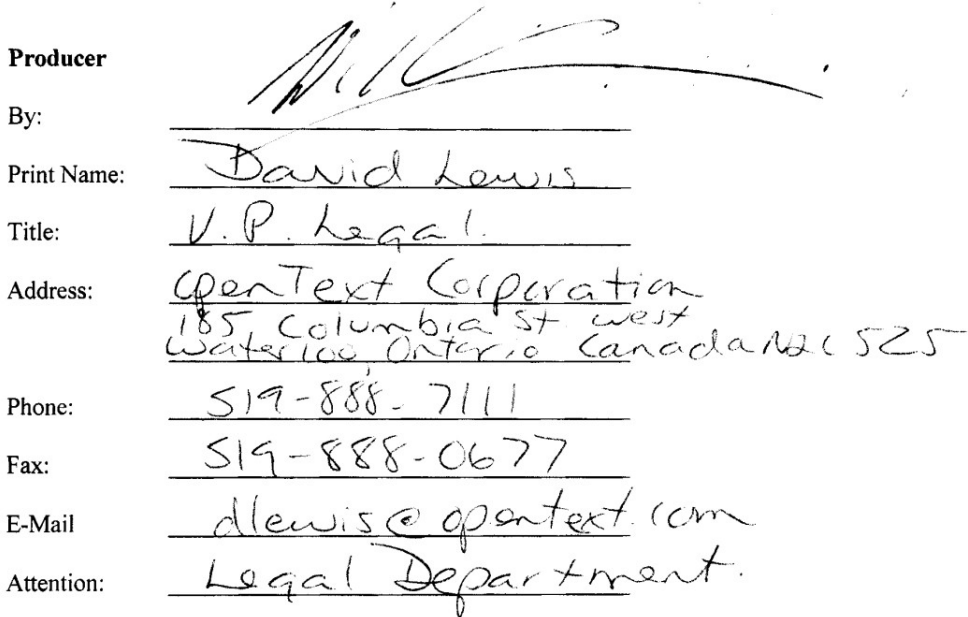 Producer
By:
Print Name: David Lewis
Title: V.P. Legal.
Address: OpenText Corporation
185 Columbia St. west
Waterloo Ontario Canada N2L 5Z5
Phone: 519-888-7111
Fax: 519-888-0677
E-Mail dlewis@opentext.com
Attention: Legal Department.